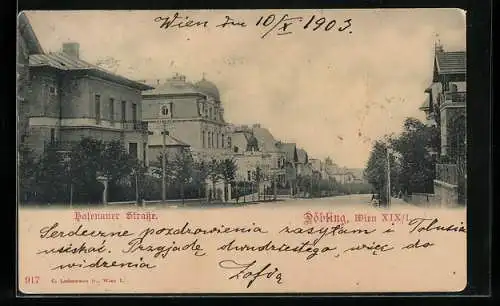 Wien dn. 10/X 1903.
Hasenauer Straße.
Döbling, Wien XIX/1.
Serdeczne pozdrowienia zasyłam i Tolusia
uściskać. Przyjadę dwudziestego, więc do
widzenia
Zofią
917
C. Ledermann jr., Wien I.